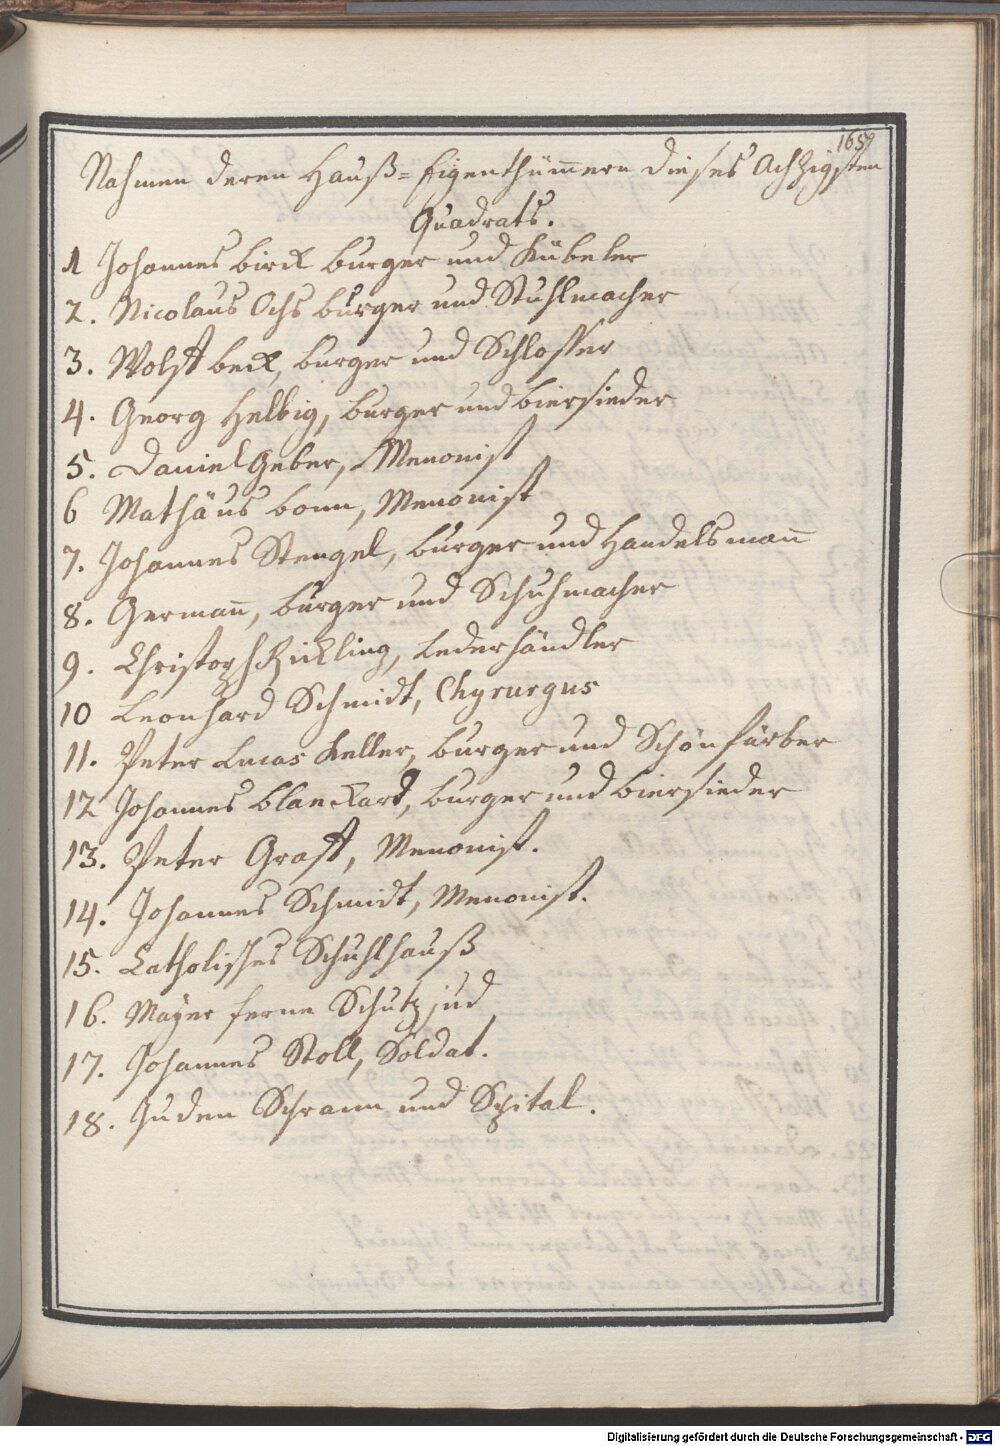 165
Nahmen deren Hauß=Eigenthümern dieses Achzigsten
Quadrats.
1 Johannes birck burger und Kübeler
2. Nicolaus Ochs burger und Stuhlmacher
3. Wolff beck, burger und Schlosser
4. Georg Helbig, burger und biersieder
5. Daniel Geber, Menonist
6 Mathäus bonn, Menonist
7. Johannes Stengel, burger und Handelsmann
8. Germann, burger und Schuhmacher
9. Christoph Rickling, Lederhändler
10 Leonhard Schmidt, Chyrurgus
11. Peter Lucas Keller, burger und Schönfärber
12 Johannes blanckard, burger und biersieder
13. Peter Graff, Menonist.
14. Johannes Schmidt, Menonist.
15. Catholisches Schuhlhauß
16. Mayer ferne Schutz jud
17. Johannes Stoll, Soldat.
18. Juden Schrann und Spital.
Digitalisierung gefördert durch die Deutsche Forschungsgemeinschaft - DFG